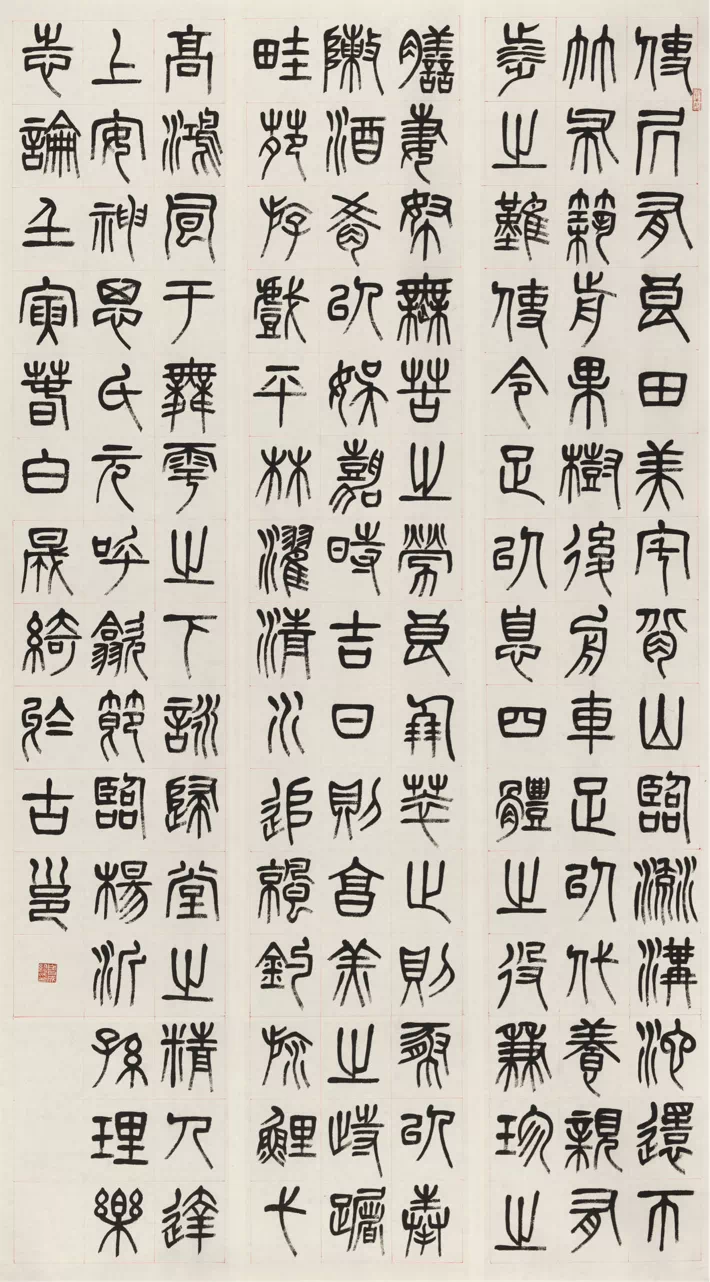 使凥有良田美宇背山臨流溝池還帀
竹木築前果樹後舟車足以代養親有
步之難使令足以息四體之役兼珍之
膳妻孥無苦之勞良朋萃止則豚以奉
陳酒肴以娛嘉時吉日則亯羔之峙躇
畦苑游戲平林濯清水追釣游鯉弋
高鴻風于舞雩之下詠歸堂之精人達
上安神思氏玄呼歙節臨楊沂孫理樂
志論壬寅春白晟綺於古邕